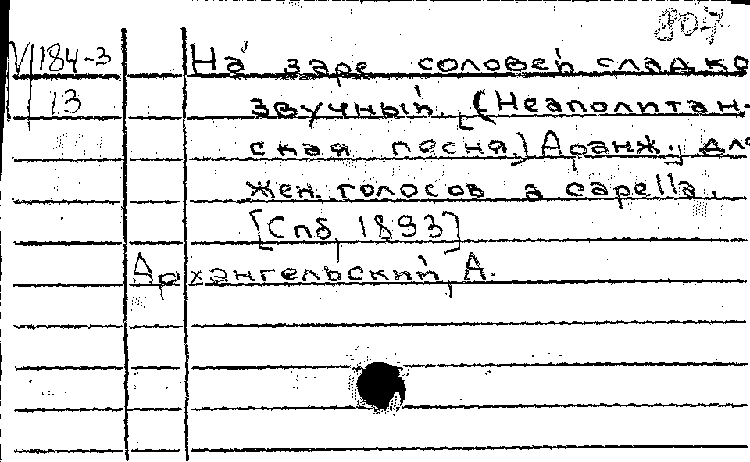 807
V 184-3 На заре соловей сладко
13 звучный. (Неаполитан-
ская песня.) Аранж. для
жен. голосов a capella.
[Спб, 1893]
Архангельский, А.